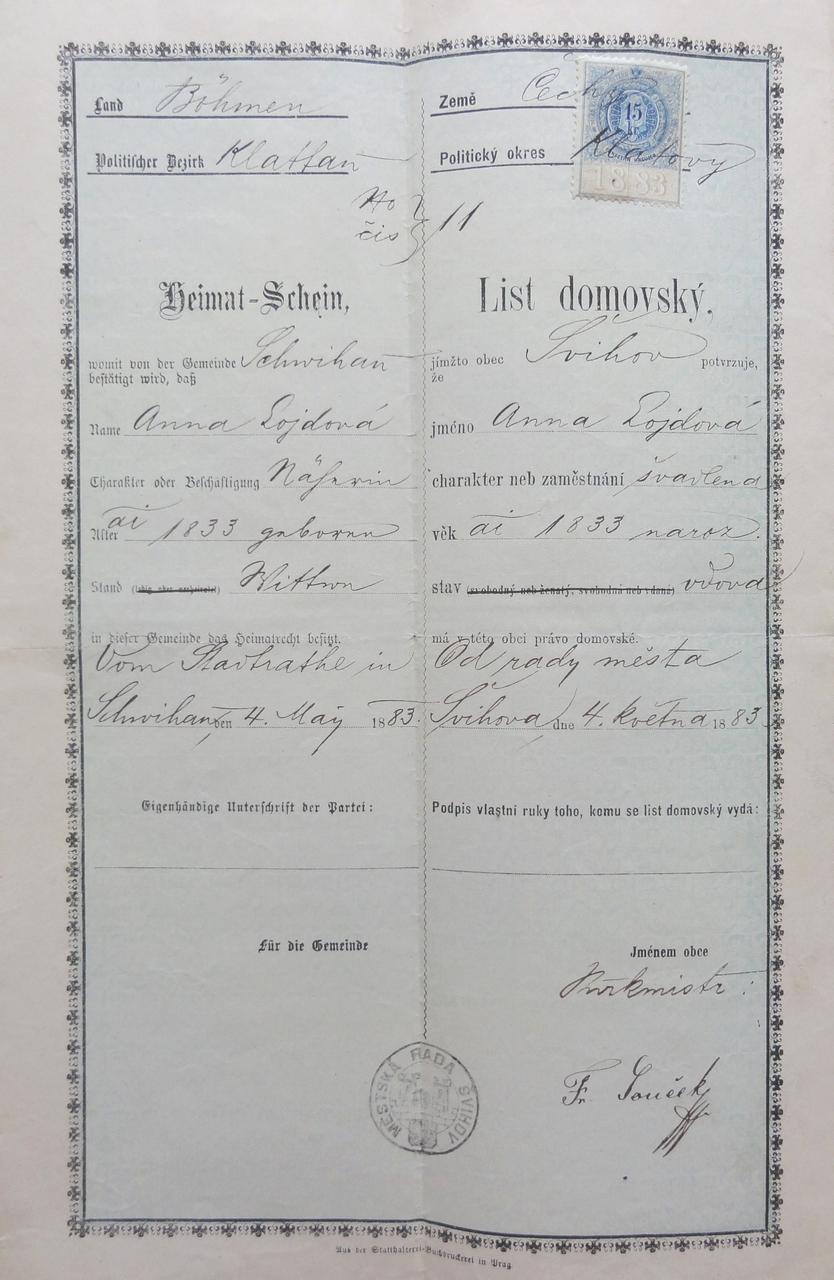 Land Böhmen
Politischer Bezirk Klattau
Země Čechy
Politický okres Klatovy
15
kr.
1883
No
čis 11
Heimat-Schein,
womit von der Gemeinde Schwihau
bestätigt wird, daß
Name Anna Lojdová
Charakter oder Beschäftigung Näherin
Alter ai 1833 geboren
Stand (ledig oder verheiratet) Wittwe
in dieser Gemeinde das Heimatrecht besitzt.
Vom Stadtrathe in
Schwihau, den 4. May 1883.
Eigenhändige Unterschrift der Partei:
Für die Gemeinde
List domovský,
jímžto obec Švihov potvrzuje,
že
jméno Anna Lojdová
charakter neb zaměstnání švadlena
věk ai 1833 naroz.
stav (svobodný neb ženatý, svobodná neb vdaná) vdova
má v této obci právo domovské.
Od rady města
Švihova, dne 4. května 1883.
Podpis vlastní ruky toho, komu se list domovský vydá:
Jménem obce
Purkmistr:
Fr. Souček
MĚSTSKÁ RADA ŠVIHOV
Aus der Statthalterei-Buchdruckerei in Prag.